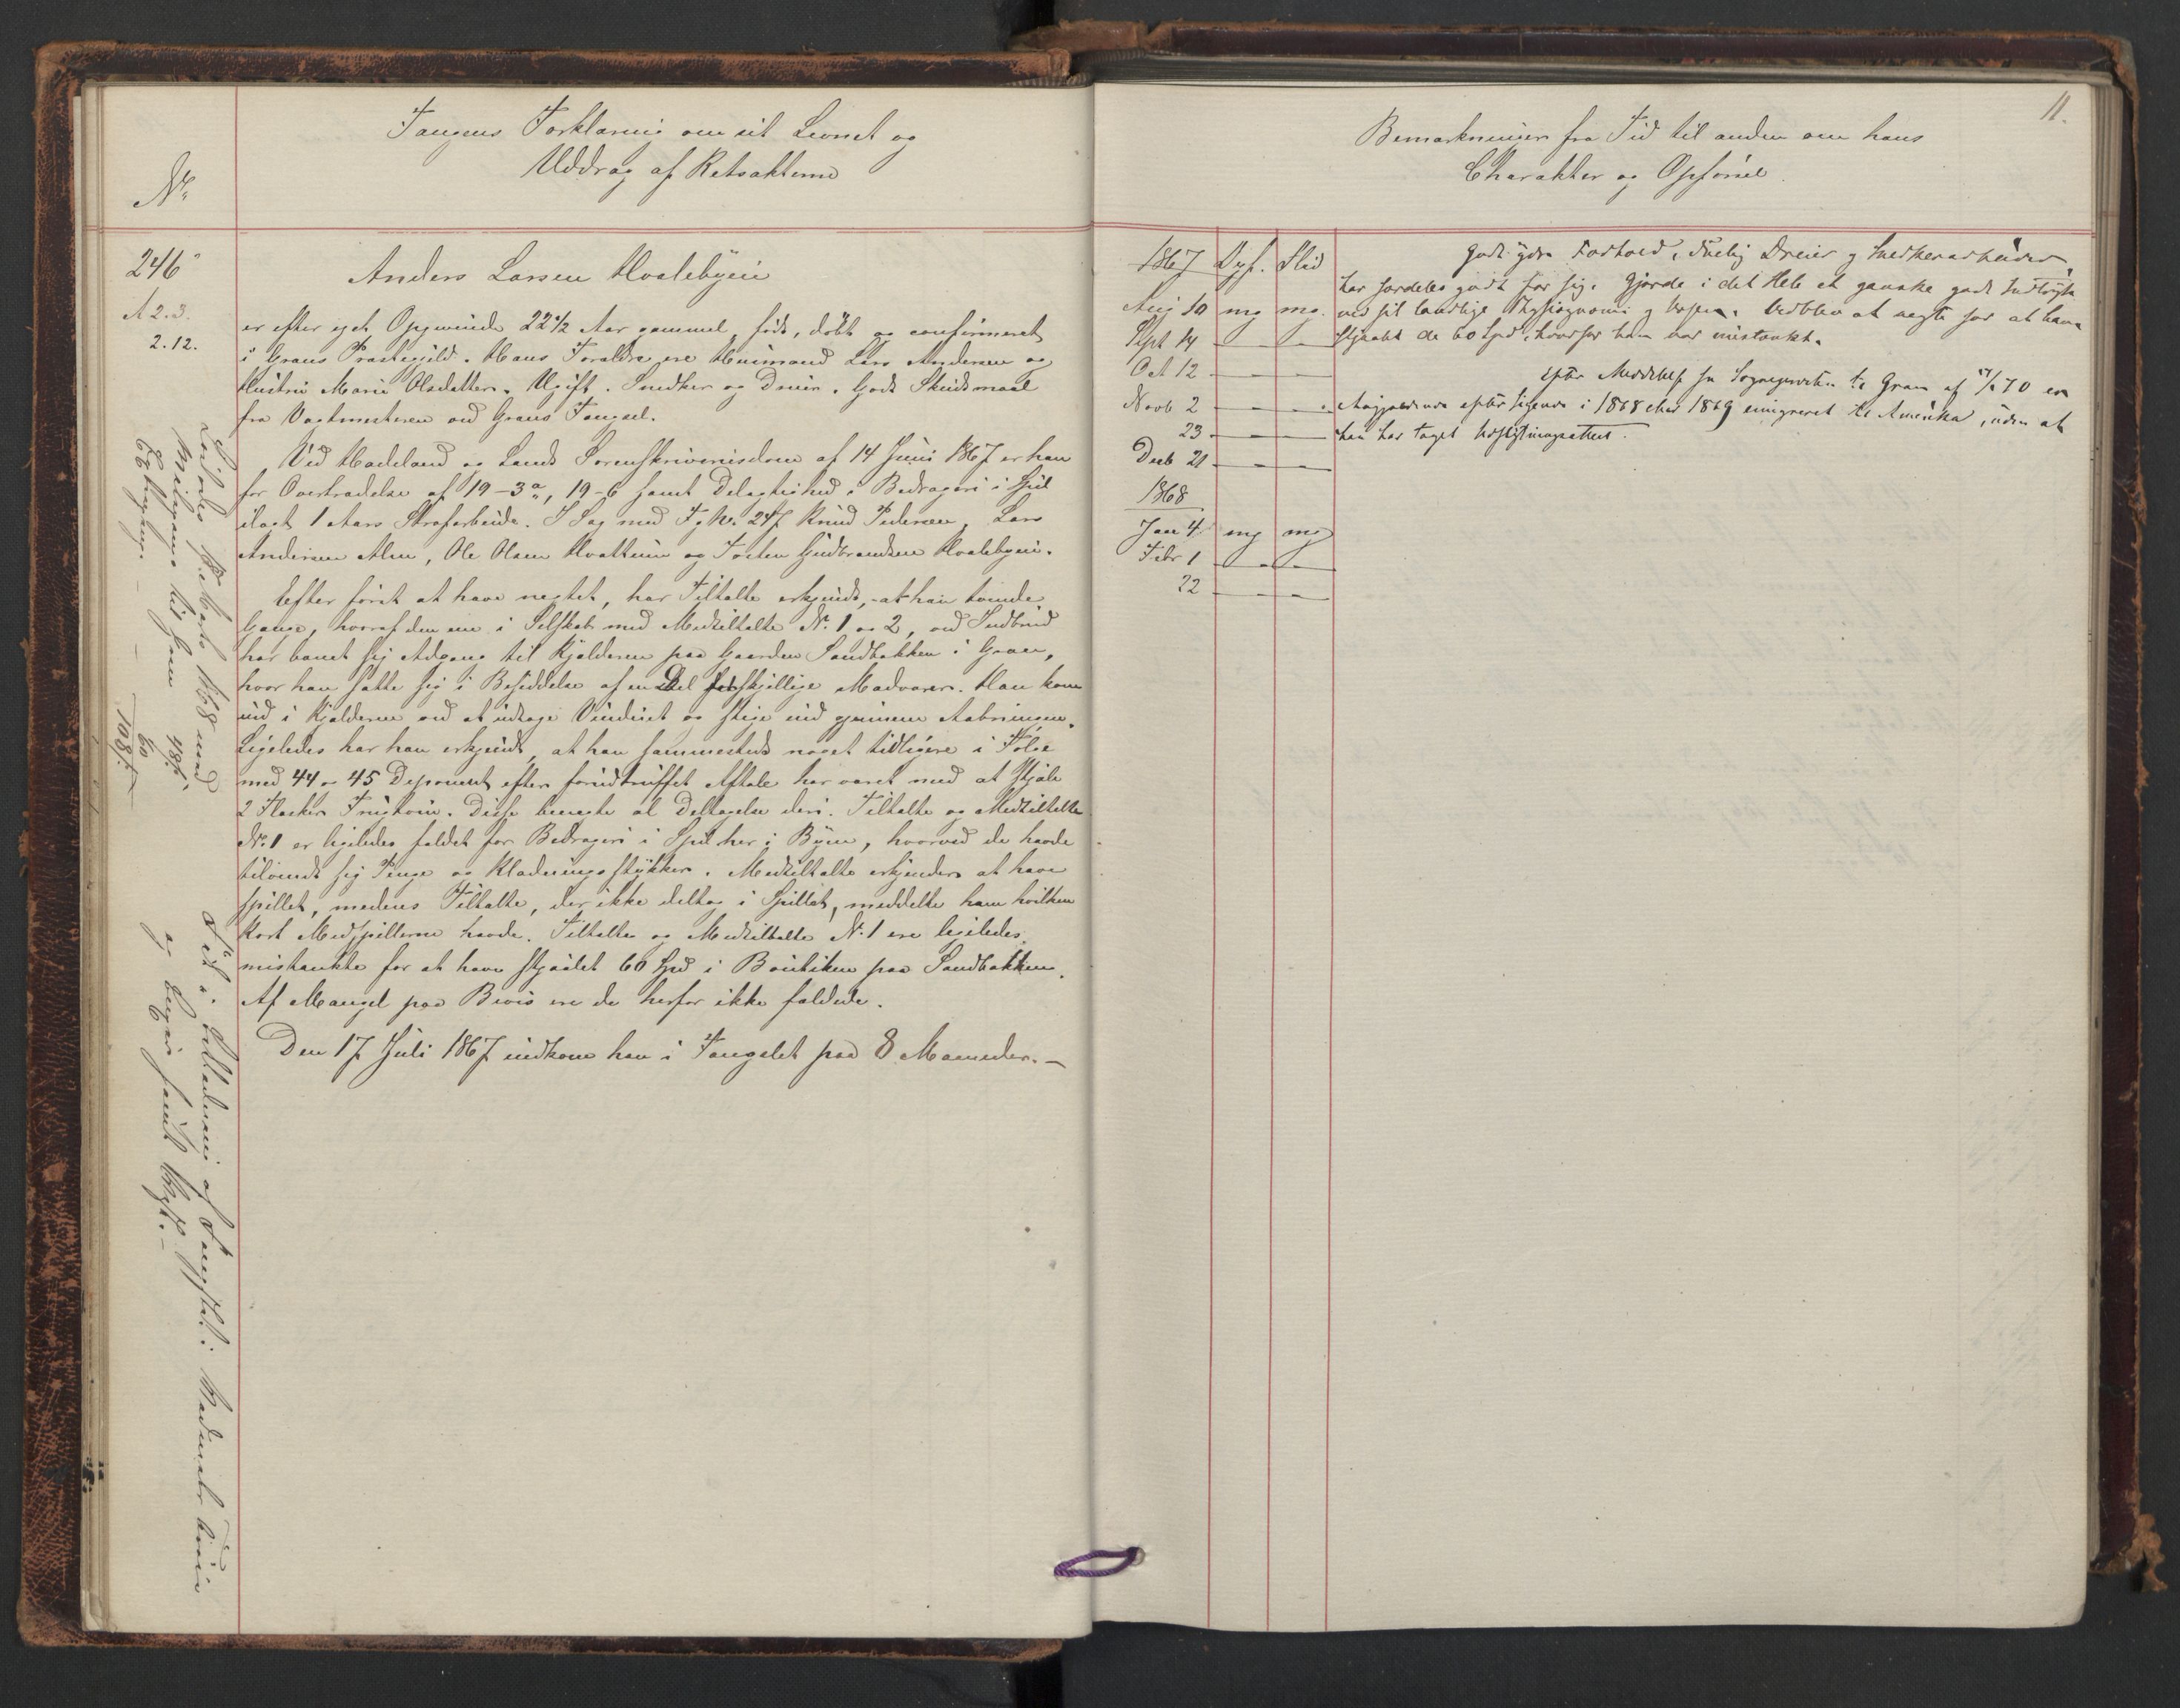 Fangens Forklaring om sit Levnet og
Uddrag af Retsakterne
No.
246
A 2.3.
2.12.
Anders Larsen Hvalebyeie
er efter eget Opgivende 22½ Aar gammel, født, døbt og confirmeret
i Grans Præstegjeld. Hans Forældre ere Huusmand Lars Andersen og
Hustru Marie Olsdatter. Ugift. Snedker og Dreier. Godt Skudsmaal
fra Vagtmesteren ved Grans Fængsel.
Ved Hadeland og Lands Sorenskriverisdom af 14 Juni 1867 er han
for Overtrædelse af 19-3a, 19-6 samt Delagtighed i Bedrageri i Spil
ilagt 1 Aars Strafarbeide. I Sag med Fg No. 247 Knud Pedersen, Lars
Andersen Alm, Ole Olsen Hvattum og Torsten Gudbrandsen Hvalebyeie.
Efter først at have negtet, har Tiltalte erkjendt, at han tvende
Gange, hvoraf den ene i Selskab med Medtiltalte No. 1 og 2, ved Indbrud
har banet sig Adgang til Kjælderen paa Gaarden Sandbakken i Gran,
hvor han satte sig i Besiddelse af en Del forskjellige Madvarer. Han kom
ind i Kjælderen ved at udtage Vinduet og stige ind gjennem Aabningen.
Ligeledes har han erkjendt, at han sammesteds noget tidligere i Følge
med 44 og 45 Deponent efter forudtruffet Aftale har været med at stjæle
2 Flasker Frugtviin. Disse benegte al Deltagelse deri. Tiltalte og Medtiltalte
No. 1 er ligeledes fældet for Bedrageri i Spil her i Byen, hvorved de havde
tilvendt sig Penge og Klædningsstykker. Medtiltalte erkjender at have
spillet, medens Tiltalte, der ikke deltog i Spillet, meddelte ham hvilken
Kort Medspillerne havde. Tiltalte og Medtiltalte No. 1 ere ligeledes
mistænkte for at have stjaalet 60 Spd i Boutiken paa Sandbakken.
Af Mangel paa Bevis ere de herfor ikke fældede.
Den 17 Juli 1867 indkom han i Fængslet paa 8 Maaneder.
Løslodes 1868 med
til Gran 48 s.
60
108 s.
11.
Bemærkninger fra Tid til anden om hans
Charakter og Opførsel.
1867 Opf. Flid
Aug 10 mg mg.
Sept 14 — —
Oct 12 — —
Novb 2 — —
23 — —
Decb 21 — —
1868
Jan 4 mg mg
Febr 1 — —
22 — —
Godt ydre Forhold, duelig Dreier og Snedkerarbeider,
har særdeles godt for sig. Gjorde i det Hele et ganske godt Indtryk
ved sit landlige Physiognomi og Væsen. Vedblev at negte for at have
stjaalet de 60 Spd, hvorfor han var mistænkt.
Efter Meddelelse fra Sognepresten til Gran af 70 er
Angjældende efter Sigende i 1868 eller 1869 emigreret til Amerika, uden at
han har taget Udflytningsattest.